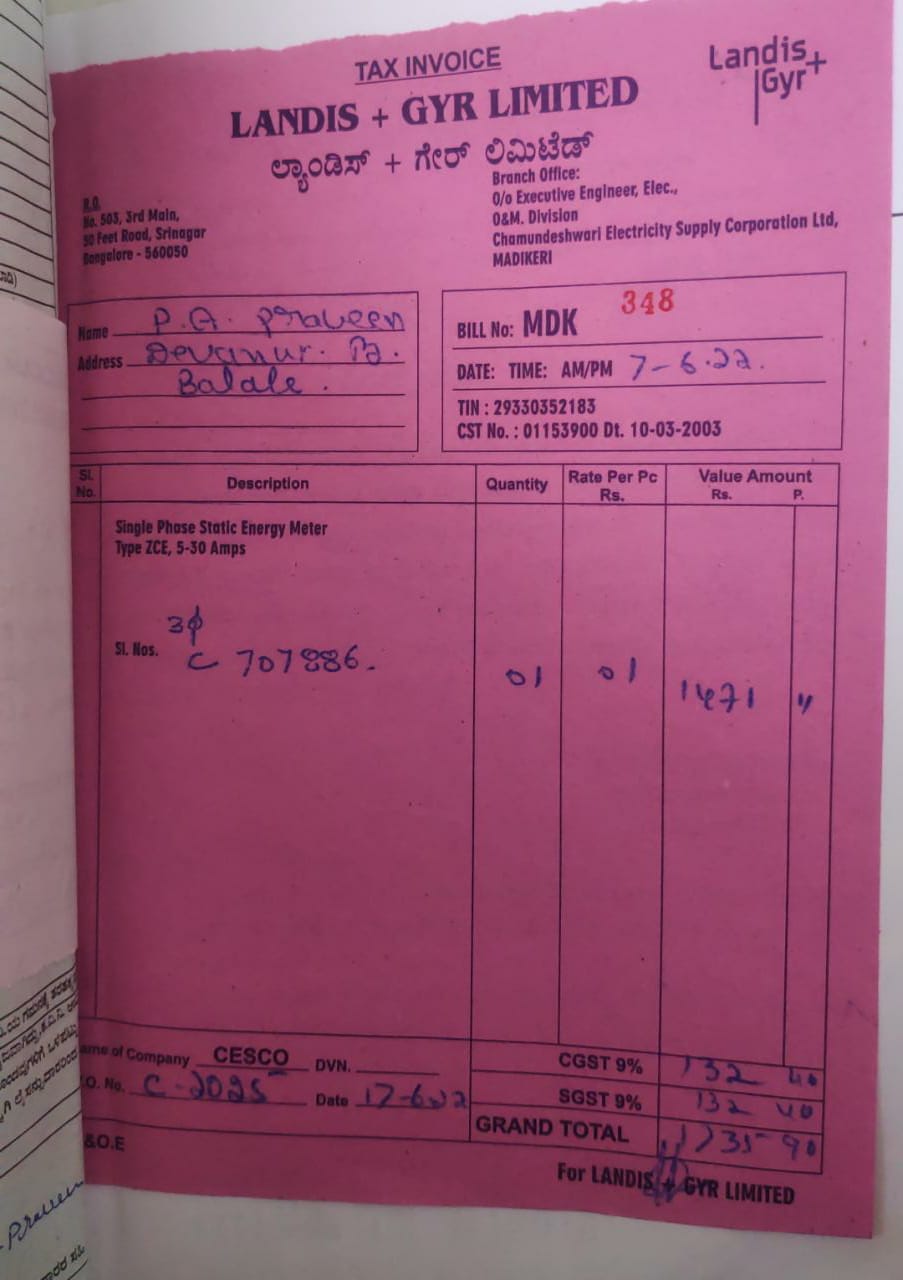 TAX INVOICE
Landis+
Gyr
LANDIS + GYR LIMITED
ಲ್ಯಾಂಡಿಸ್ + ಗೇರ್ ಲಿಮಿಟೆಡ್
R.O.
No. 503, 3rd Main,
50 Feet Road, Srinagar
Bangalore - 560050
Branch Office:
O/o Executive Engineer, Elec.,
O&M. Division
Chamundeshwari Electricity Supply Corporation Ltd,
MADIKERI
Name P.A. Praveen
Address Devanur.
Balale.
BILL No: MDK 348
DATE: TIME: AM/PM 7-6-22.
TIN : 29330352183
CST No. : 01153900 Dt. 10-03-2003
Sl. No. Description Quantity Rate Per Pc Rs. Value Amount Rs. P.
Single Phase Static Energy Meter
Type ZCE, 5-30 Amps
3ϕ
Sl. Nos. C 707886. 01 01 1471 "
ame of Company CESCO DVN.
CGST 9% 132 40
.O. No. C-2025 Date 17-6-22
SGST 9% 132 40
GRAND TOTAL 1735 90
&O.E
For LANDIS + GYR LIMITED
Praveen